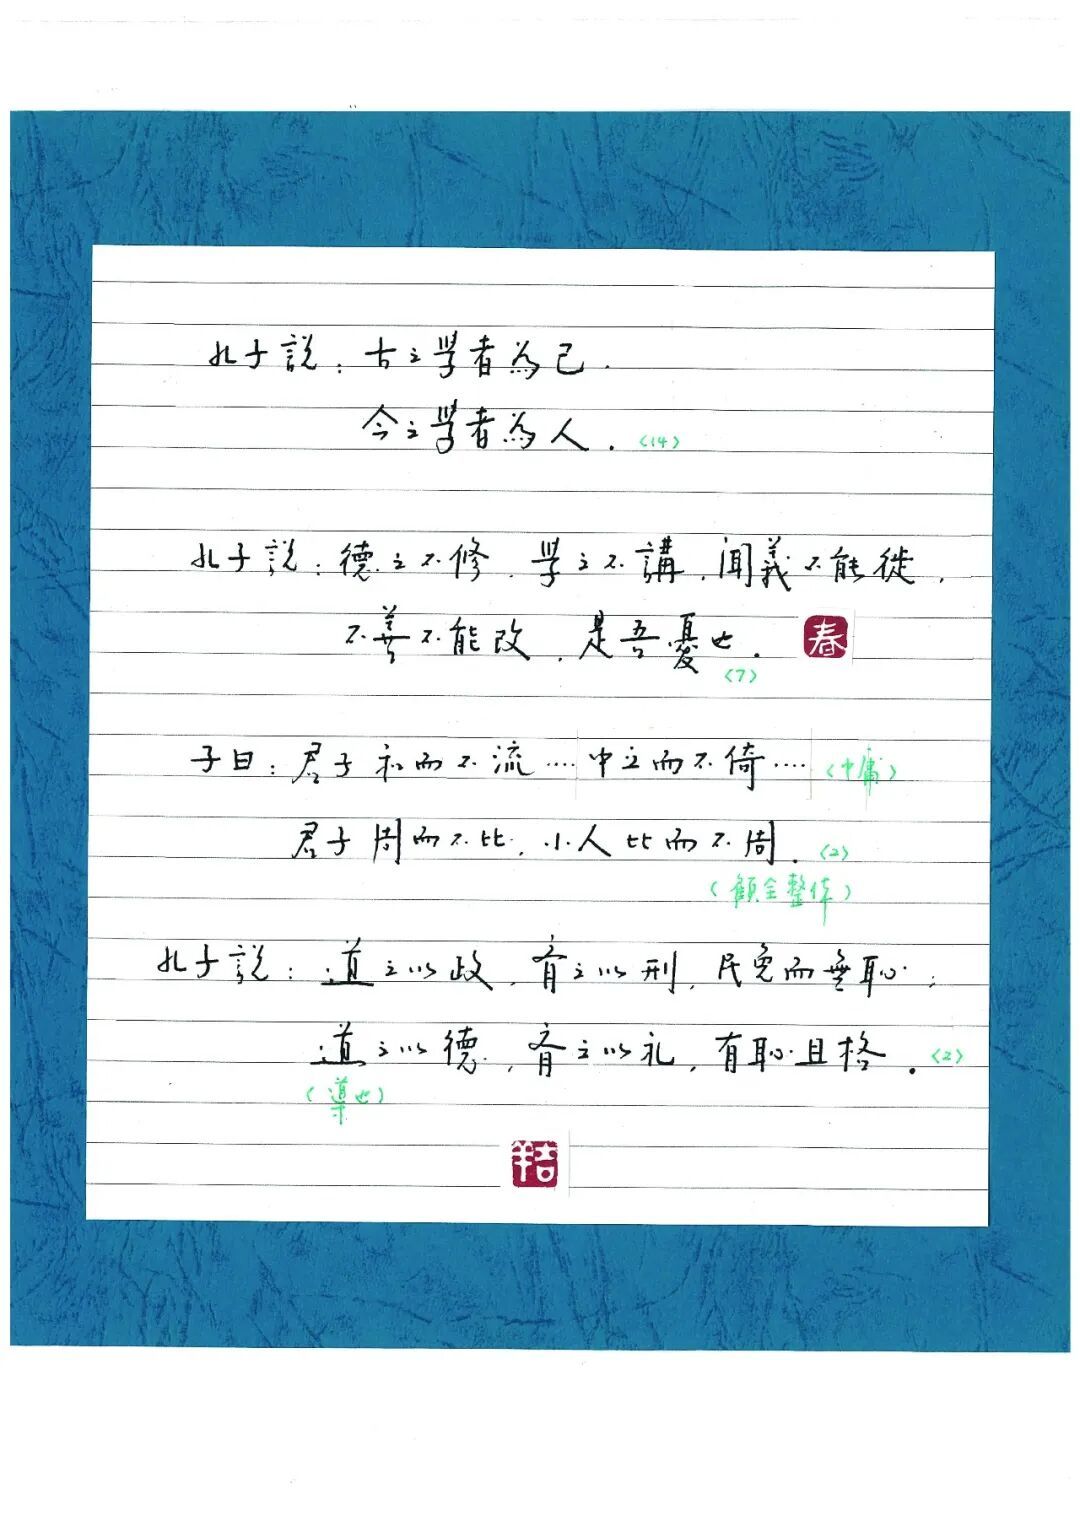 孔子說：古之學者為己．
今之學者為人．〈14〉
孔子說：德之不修，學之不講，聞義不能徙，
不善不能改，是吾憂也． 春
〈7〉
子曰：君子和而不流‥‥中立而不倚‥‥〈中庸〉
君子周而不比，小人比而不周．〈2〉
（顧全整体）
孔子說：道之以政，斉之以刑，民免而無恥；
道之以德，斉之以礼，有恥且格．〈2〉
（導也）
吉羊